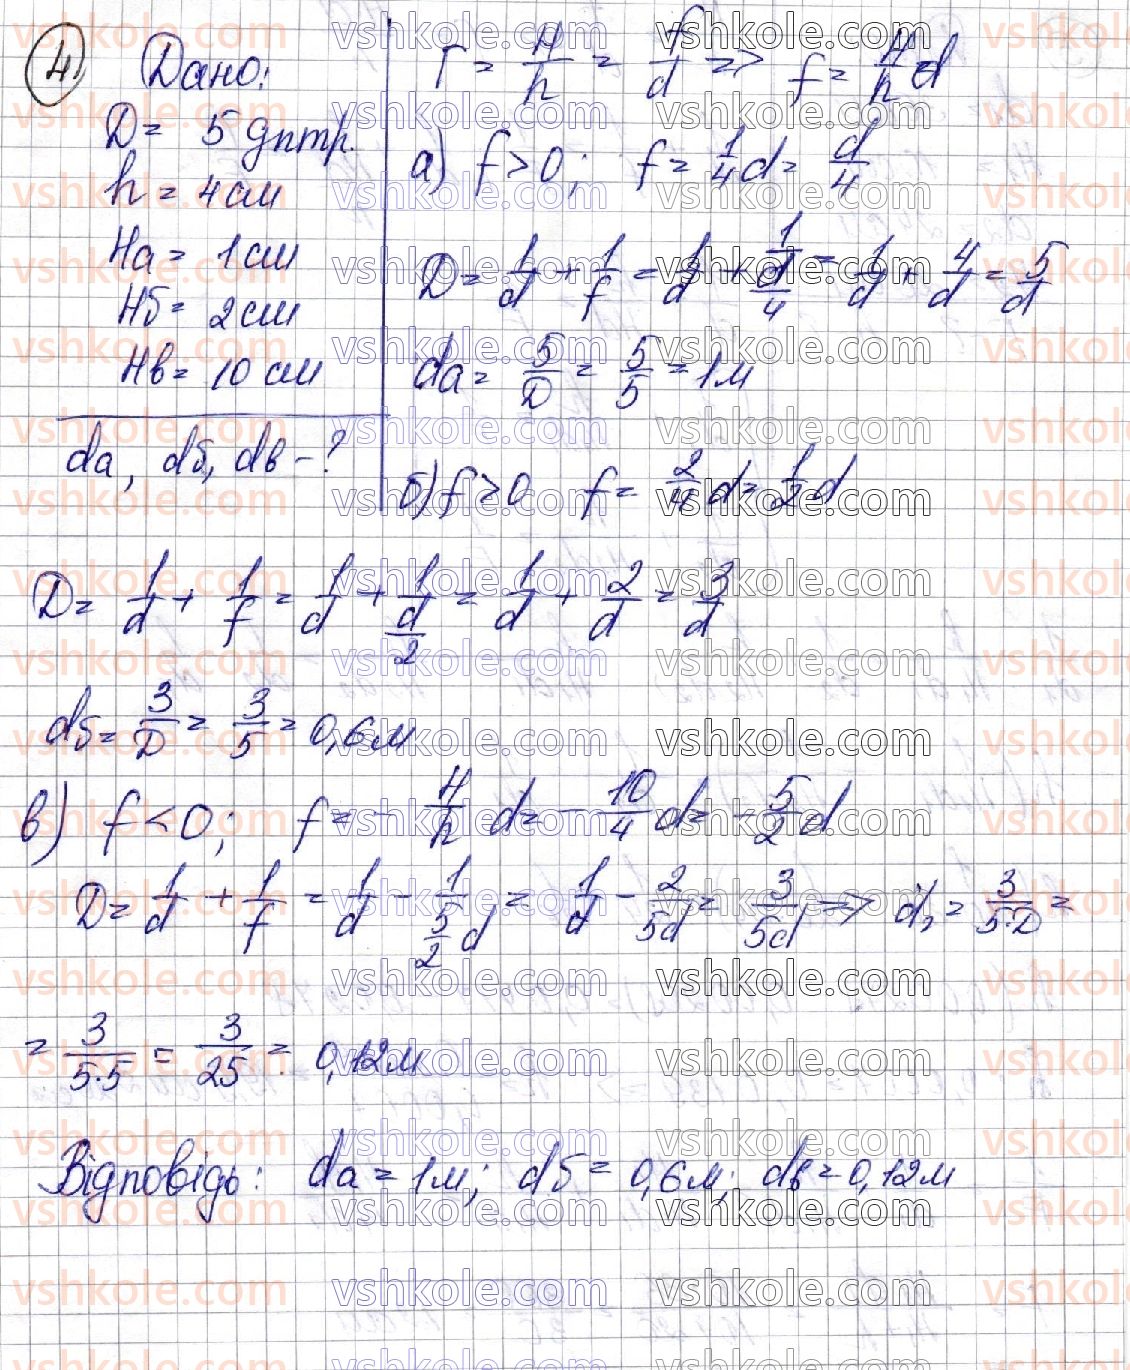 4) Дано:
D = 5 дптр.
h = 4 см
Hа = 1 см
Hб = 2 см
Hв = 10 см
dа, dб, dв - ?
Г = H/h = f/d => f = H/h d
а) f > 0; f = 1/4 d = d/4
D = 1/d + 1/f = 1/d + 1/(d/4) = 1/d + 4/d = 5/d
dа = 5/D = 5/5 = 1 м
б) f > 0 f = 2/4 d = 1/2 d
D = 1/d + 1/f = 1/d + 1/(d/2) = 1/d + 2/d = 3/d
dб = 3/D = 3/5 = 0,6 м
в) f < 0; f = - H/h d = - 10/4 d = - 5/2 d
D = 1/d + 1/f = 1/d - 1/(5/2 d) = 1/d - 2/5d = 3/5d => d, = 3/5·D =
= 3/5·5 = 3/25 = 0,12 м
Відповідь: dа = 1 м; dб = 0,6 м; dв = 0,12 м
vshkole.com